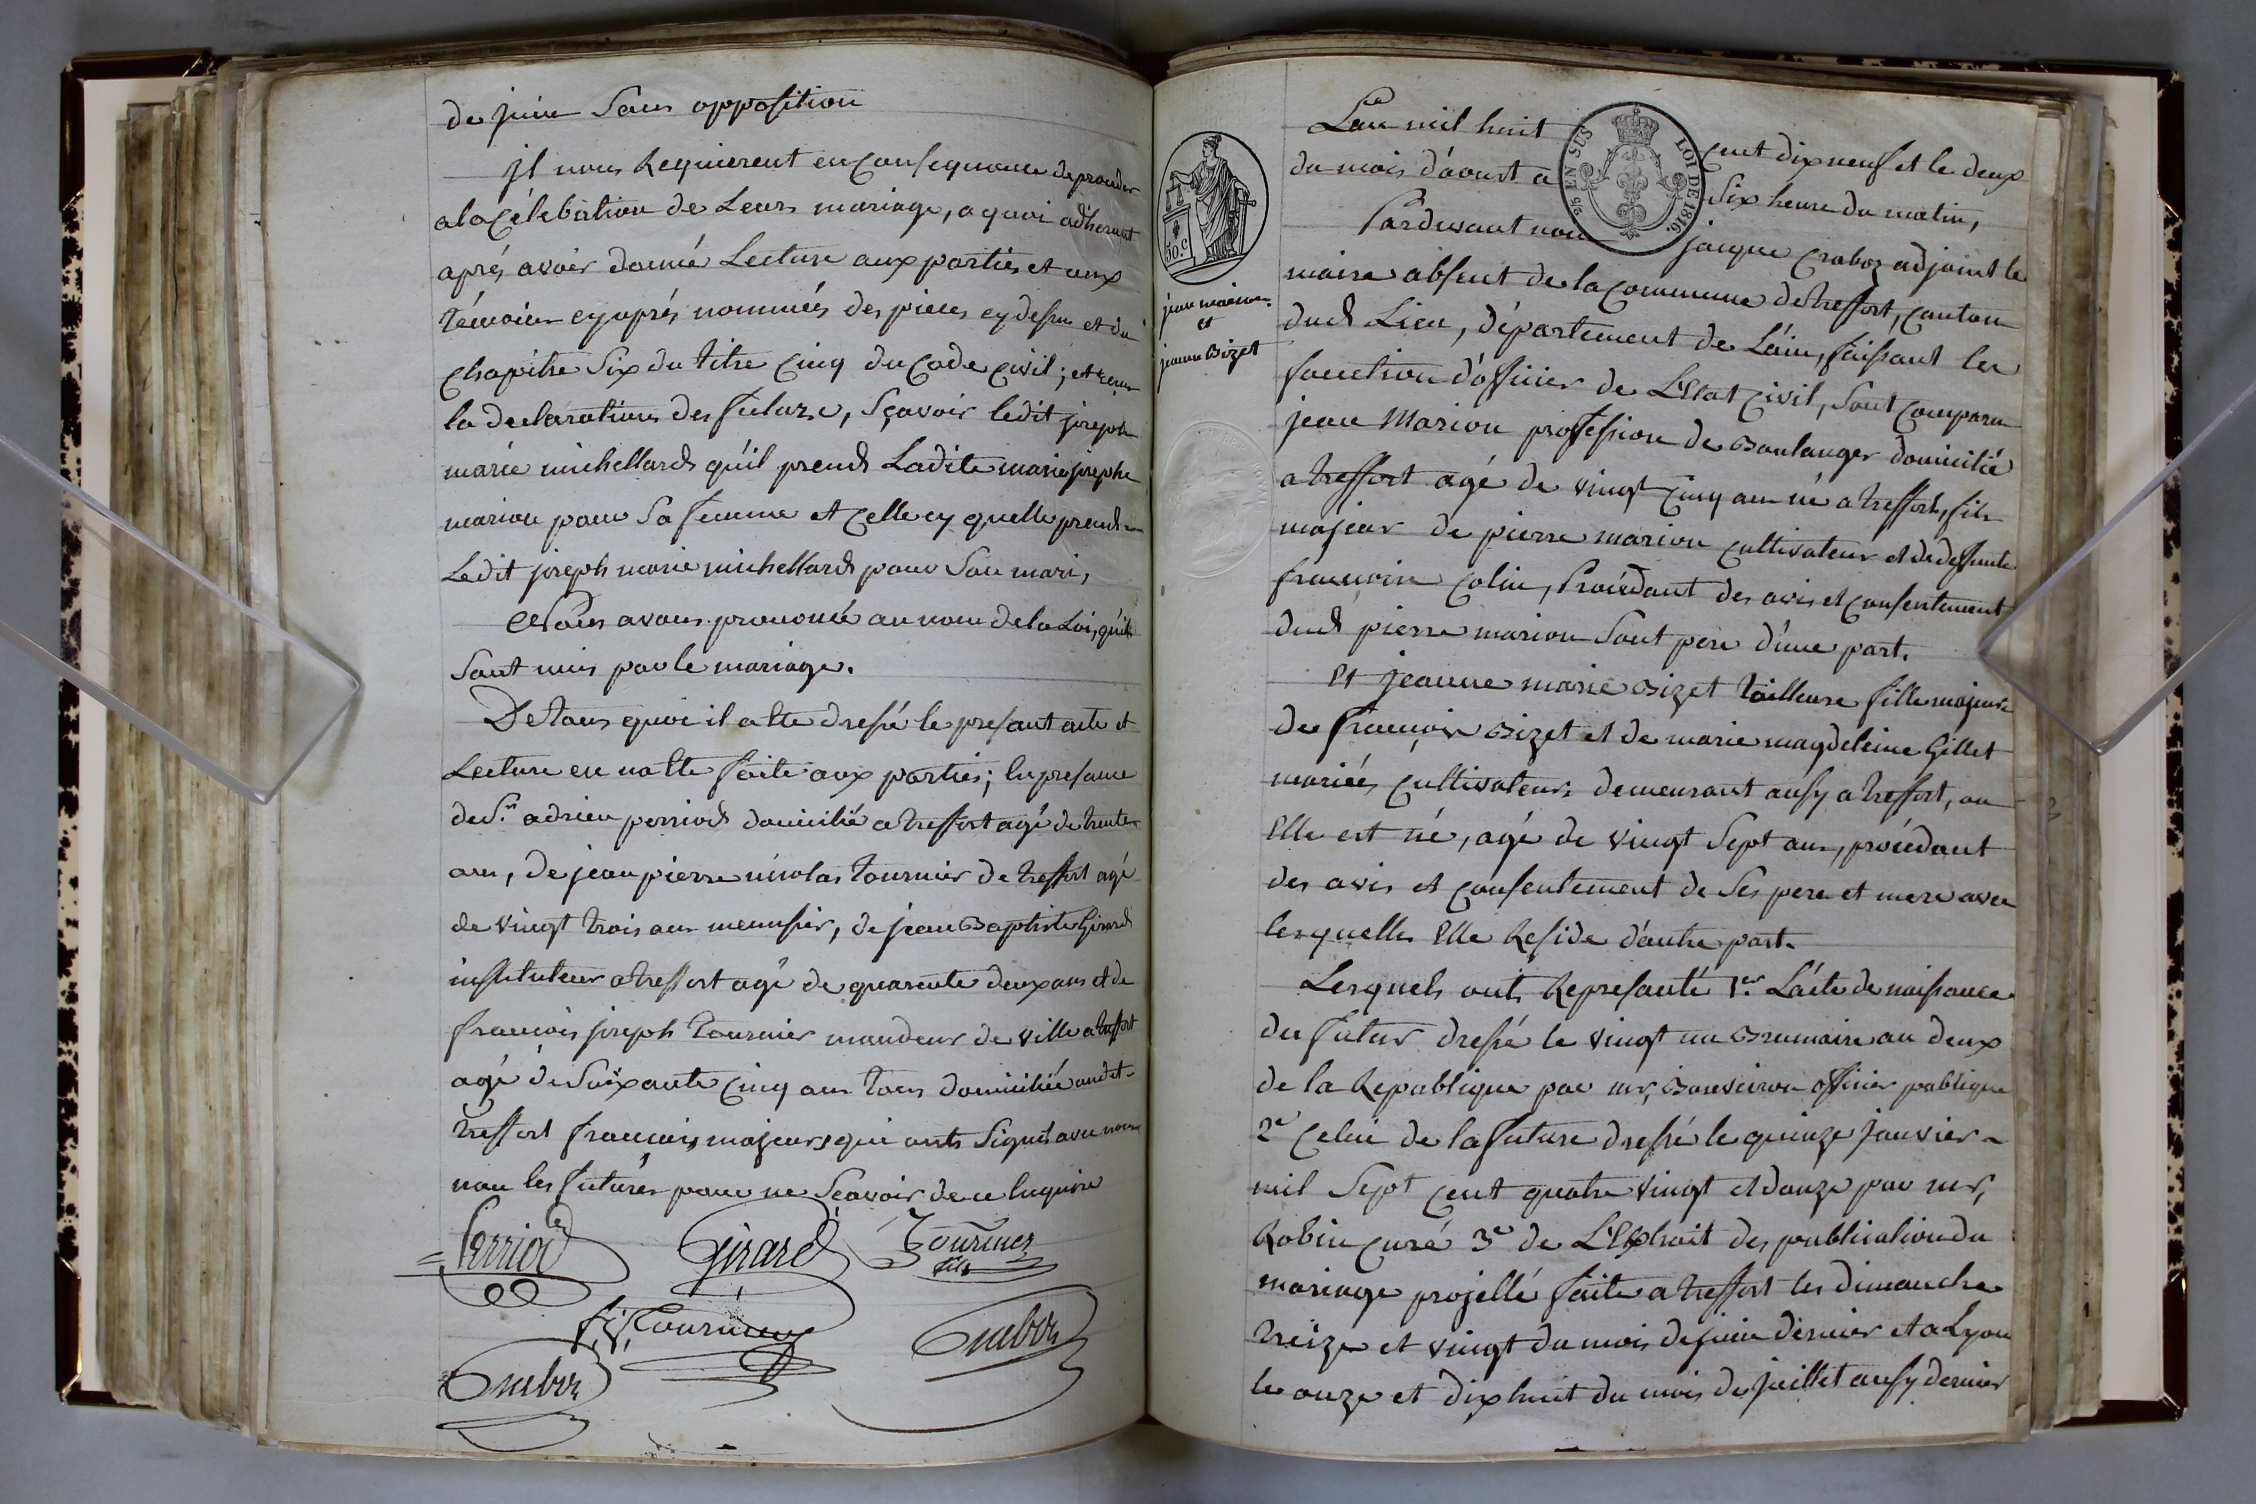 de juin Sans opposition
jl nous Requierent en Consequance de proceder
a la Célebration de Leurs mariage, a quoi adherant
aprés avoir donné Lecture aux parties et aux
témoins cy aprés nommés des pieces cy dessus et du
chapitre Six du titre Cinq du Code Civil; et reçus
la declarations des futurs, Sçavoir ledit joseph
marie michellard qu'il prend Ladite marie josephe
marion pour Sa femme et Celle cy quelle prend
Ledit joseph marie michellard pour Son mari,
Nous avons prononcé au nom de la Loi, qu'ils
Sont unis par le mariage.
De tous quoi il a ete dressé le present acte et
Lecture en na ete faite aux parties; En presance
de Sr. adrien perriod domicilié a treffort agé de trente
ans, de jean pierre nicolas tournier de treffort agé
de vingt trois ans menusier, de jean Baptiste Girard
instituteur a treffort agé de quarente deux ans et de
françois joseph tournier mandeur de ville a treffort
agé de Soixante Cinq ans tous domiciliée audit
treffort français majeurs qui onts Signés avec nous
non les futures pour ne Scavoir de ce Enquire
Perriod Girard Tournier
fils
f. j. Tournier
Craboz
Craboz
30. c.
jean marion
et
jeanne Bizet
25 EN SUS LOI DE 1816.
L'an mil huit Cent dix neuf et le deux
du mois d'aoust a Six heure du matin,
Pardevant nous jacque Craboz adjoint le
maire absent de la Commune de treffort, Canton
dud Lieu, département de L'ain, faissant les
fonction d'officier de L'Etat Civil, Sont Comparu
jean Marion proffession de Boulanger domicilié
a treffort agé de vingt Cinq ans né a treffort, fils
majeur de pierre marion Cultivateur et de deffunte
francoise Colin, Procédant des avis et Consentement
dud pierre marion Sont pere d'une part.
Et jeanne marie Bizet tailleuse fille majeure
de françois Bizet et de marie magdeleine Gillet
mariés Cultivateurs demeurant aussy a treffort, ou
Elle est né, agé de vingt Sept ans, procédant
des avis et Consentement de Ses pere et mere avec
lesquelles Elle Reside d'autre part.
Lesquels onts Represanté 1er. L'acte de naissance
du futur dressé le vingt un Brumaire an deux
de la Republique par mr, Bouveiron officier publique
2e Celui de la future dressé le quinze janvier
mil Sept Cent quatre vingt et douze par mr,
Robin Curé 3e de L'Extrait des publication du
mariage projetté faite a treffort les dimanche
treize et vingt du mois de juin dernier et a Lyon
le onze et dix huit du mois de juillet aussy dernier